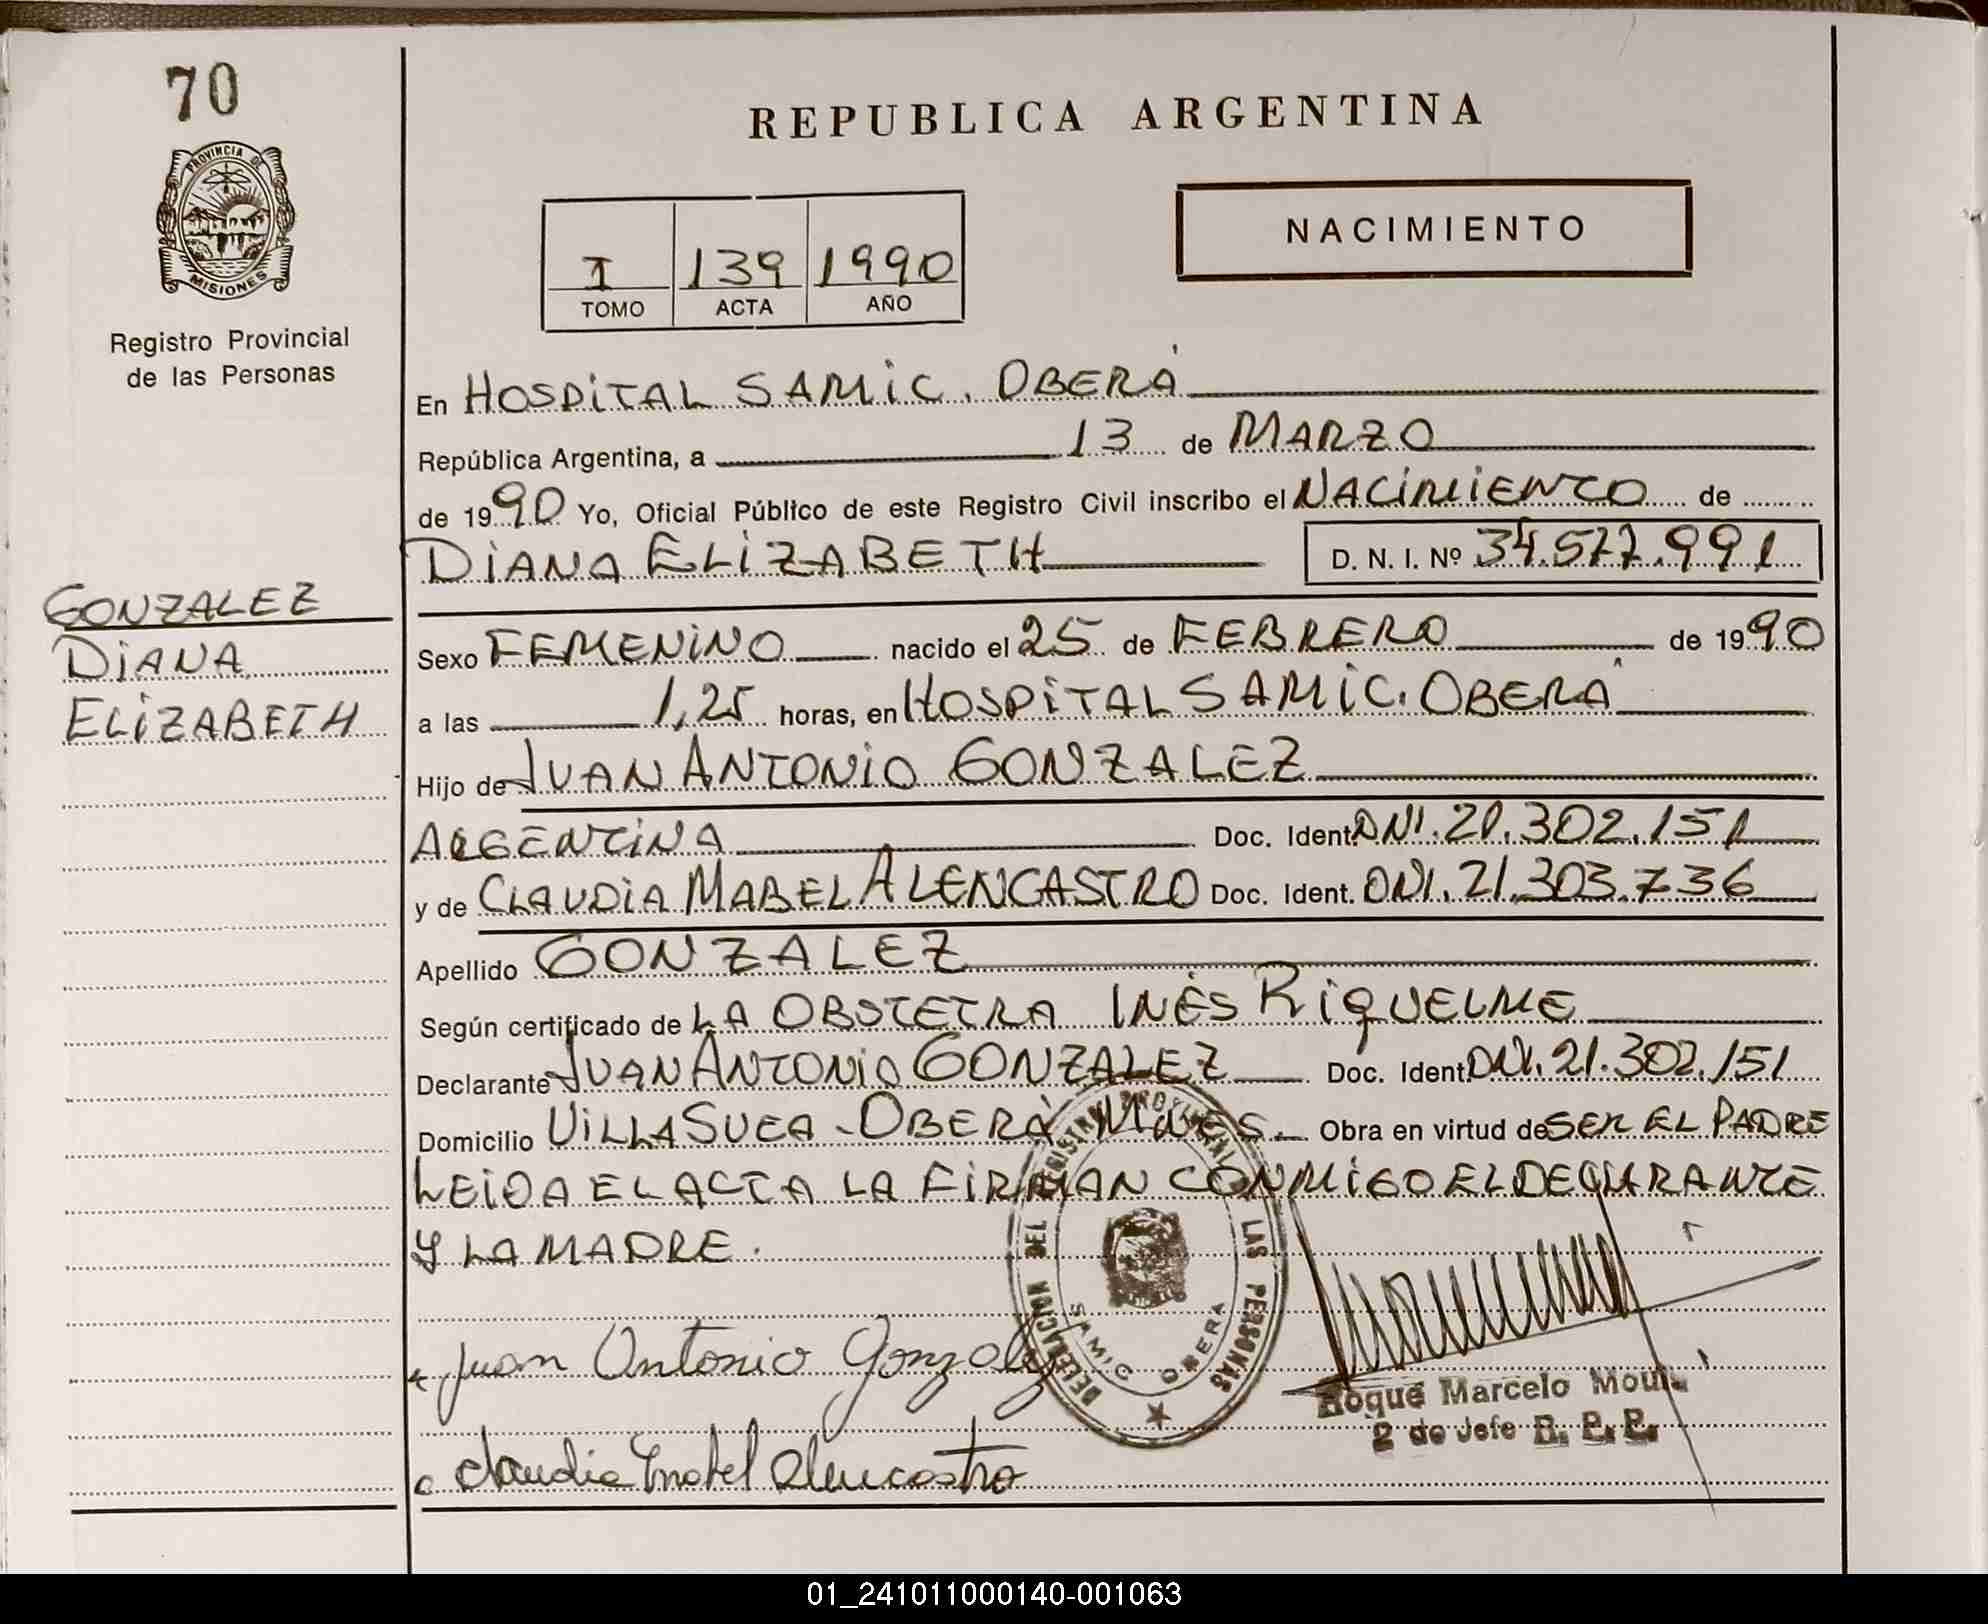 70
PROVINCIA DE
MISIONES
Registro Provincial
de las Personas
GONZALEZ
DIANA
ELIZABETH
REPUBLICA ARGENTINA
I 139 1990
TOMO ACTA AÑO
NACIMIENTO
En HOSPITAL SAMIC. OBERÁ
República Argentina, a 13 de MARZO
de 1990 Yo, Oficial Público de este Registro Civil inscribo el NACIMIENTO de
DIANA ELIZABETH D. N. I. Nº 34.577.991
Sexo FEMENINO nacido el 25 de FEBRERO de 1990
a las 1,25 horas, en HOSPITAL SAMIC. OBERÁ
Hijo de JUAN ANTONIO GONZALEZ
ARGENTINA Doc. Ident. DNI. 21.302.151
y de CLAUDIA MABEL ALENCASTRO Doc. Ident. DNI. 21.303.736
Apellido GONZALEZ
Según certificado de LA OBSTETRA INÉS RIQUELME
Declarante JUAN ANTONIO GONZALEZ Doc. Ident. DNI. 21.302.151
Domicilio VILLA SUECA - OBERÁ MNES. Obra en virtud de SER EL PADRE
LEIDA EL ACTA LA FIRMAN CONMIGO EL DECLARANTE
Y LA MADRE.
DELEGACION DEL REGISTRO PROVINCIAL LAS PERSONAS
SAMIC OBERA
Juan Antonio Gonzalez
Claudia Mabel Alencastro
Roque Marcelo
2 do Jefe R. P. P.
01_241011000140-001063